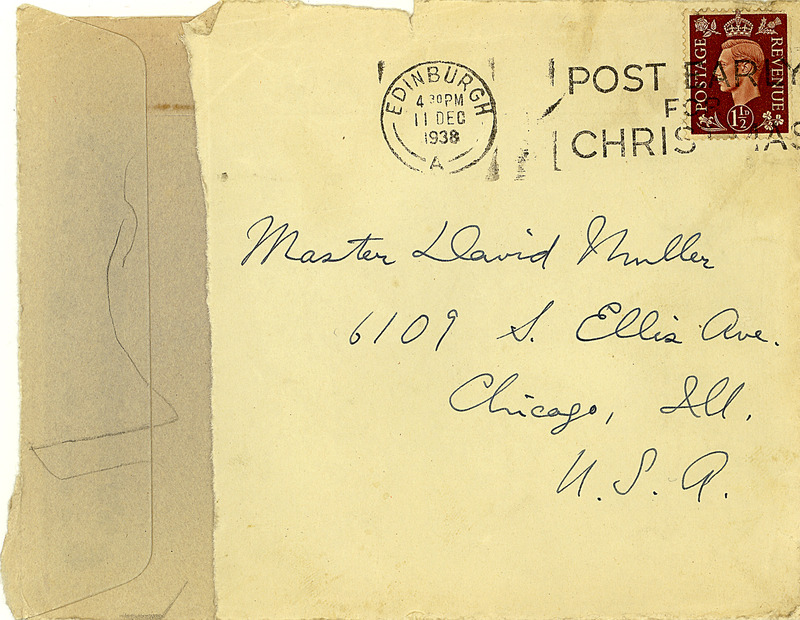 EDINBURGH
4 30 PM
11 DEC
1938
A
POST EARLY
FOR
CHRISTMAS
POSTAGE
REVENUE
1½D
Master David Muller
6109 S. Ellis Ave.
Chicago, Ill.
U. S. A.